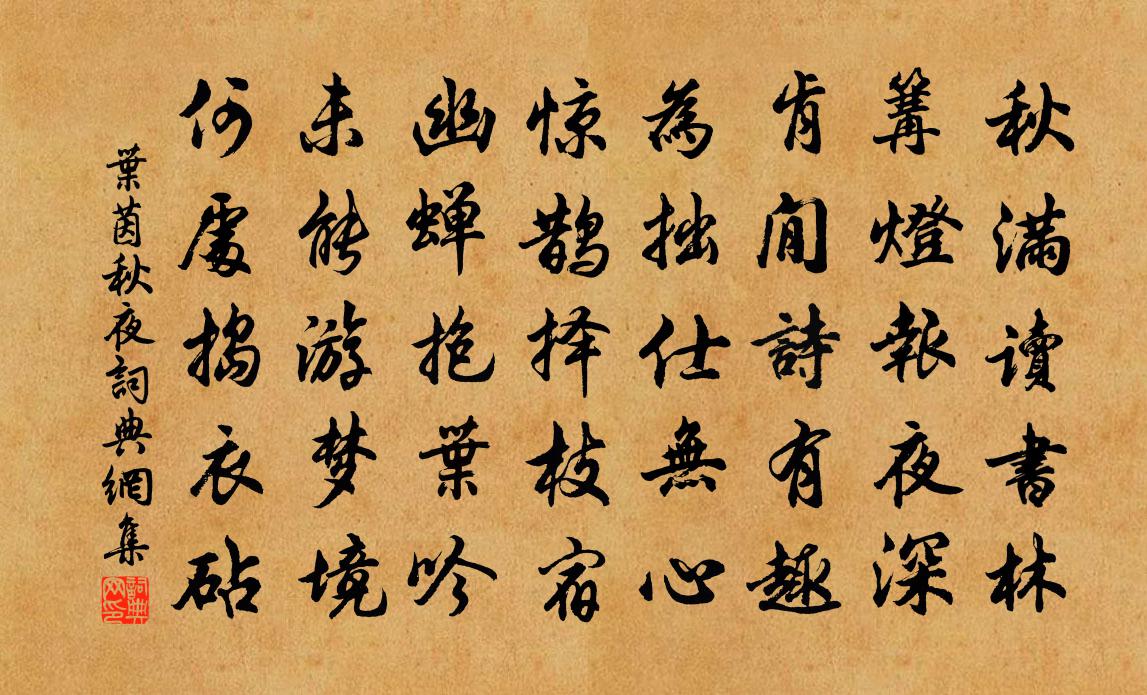 秋滿讀書林
篝燈報夜深
肯閒詩有趣
為拙仕無心
惊鹊择枝宿
幽蝉抱葉吟
未能游梦境
何處搗衣砧
葉茵秋夜詞典網集
詞典網印